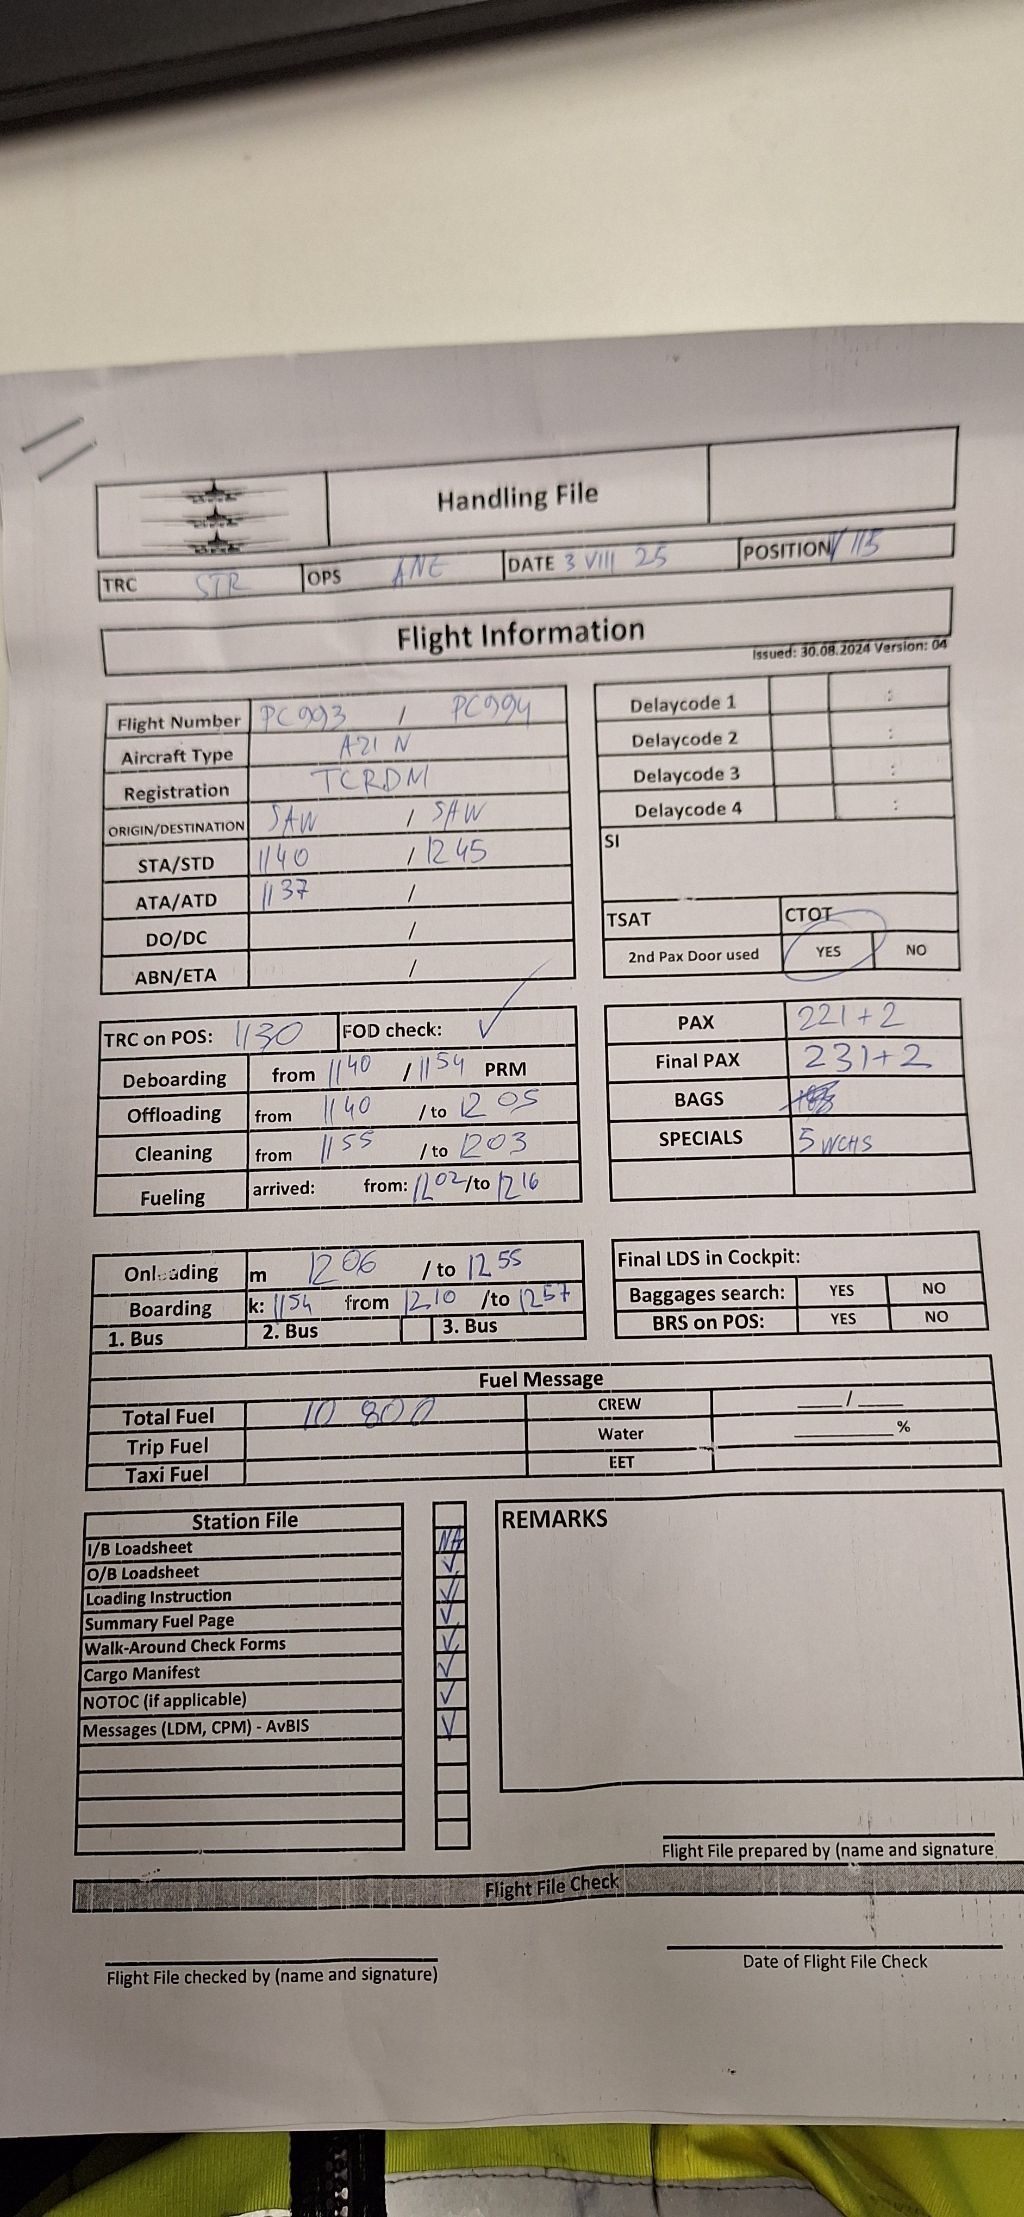 Handling File
TRC STR OPS ANE DATE 3 VIII 25 POSITION V115
Flight Information
Issued: 30.08.2024 Version: 04
Flight Number PC993 / PC994
Aircraft Type A21N
Registration TCRDM
ORIGIN/DESTINATION SAW / SAW
STA/STD 1140 / 1245
ATA/ATD 1137 /
DO/DC /
ABN/ETA /
Delaycode 1 :
Delaycode 2 :
Delaycode 3 :
Delaycode 4 :
SI
TSAT CTOT
2nd Pax Door used YES NO
TRC on POS: 1130 FOD check: ✓
Deboarding from 1140 / 1154 PRM
Offloading from 1140 / to 1205
Cleaning from 1155 / to 1203
Fueling arrived: from: 1202 /to 1216
PAX 221+2
Final PAX 231+2
BAGS
SPECIALS 5 WCHS
Onloading m 1206 / to 1255
Boarding k: 1154 from 1210 /to 1257
1. Bus 2. Bus 3. Bus
Final LDS in Cockpit:
Baggages search: YES NO
BRS on POS: YES NO
Fuel Message
Total Fuel 10 800 CREW ___/___
Trip Fuel Water ______%
Taxi Fuel EET
Station File
I/B Loadsheet NA
O/B Loadsheet ✓
Loading Instruction ✓
Summary Fuel Page ✓
Walk-Around Check Forms ✓
Cargo Manifest ✓
NOTOC (if applicable) ✓
Messages (LDM, CPM) - AvBIS ✓
REMARKS
Flight File prepared by (name and signature
Flight File Check
Flight File checked by (name and signature)
Date of Flight File Check